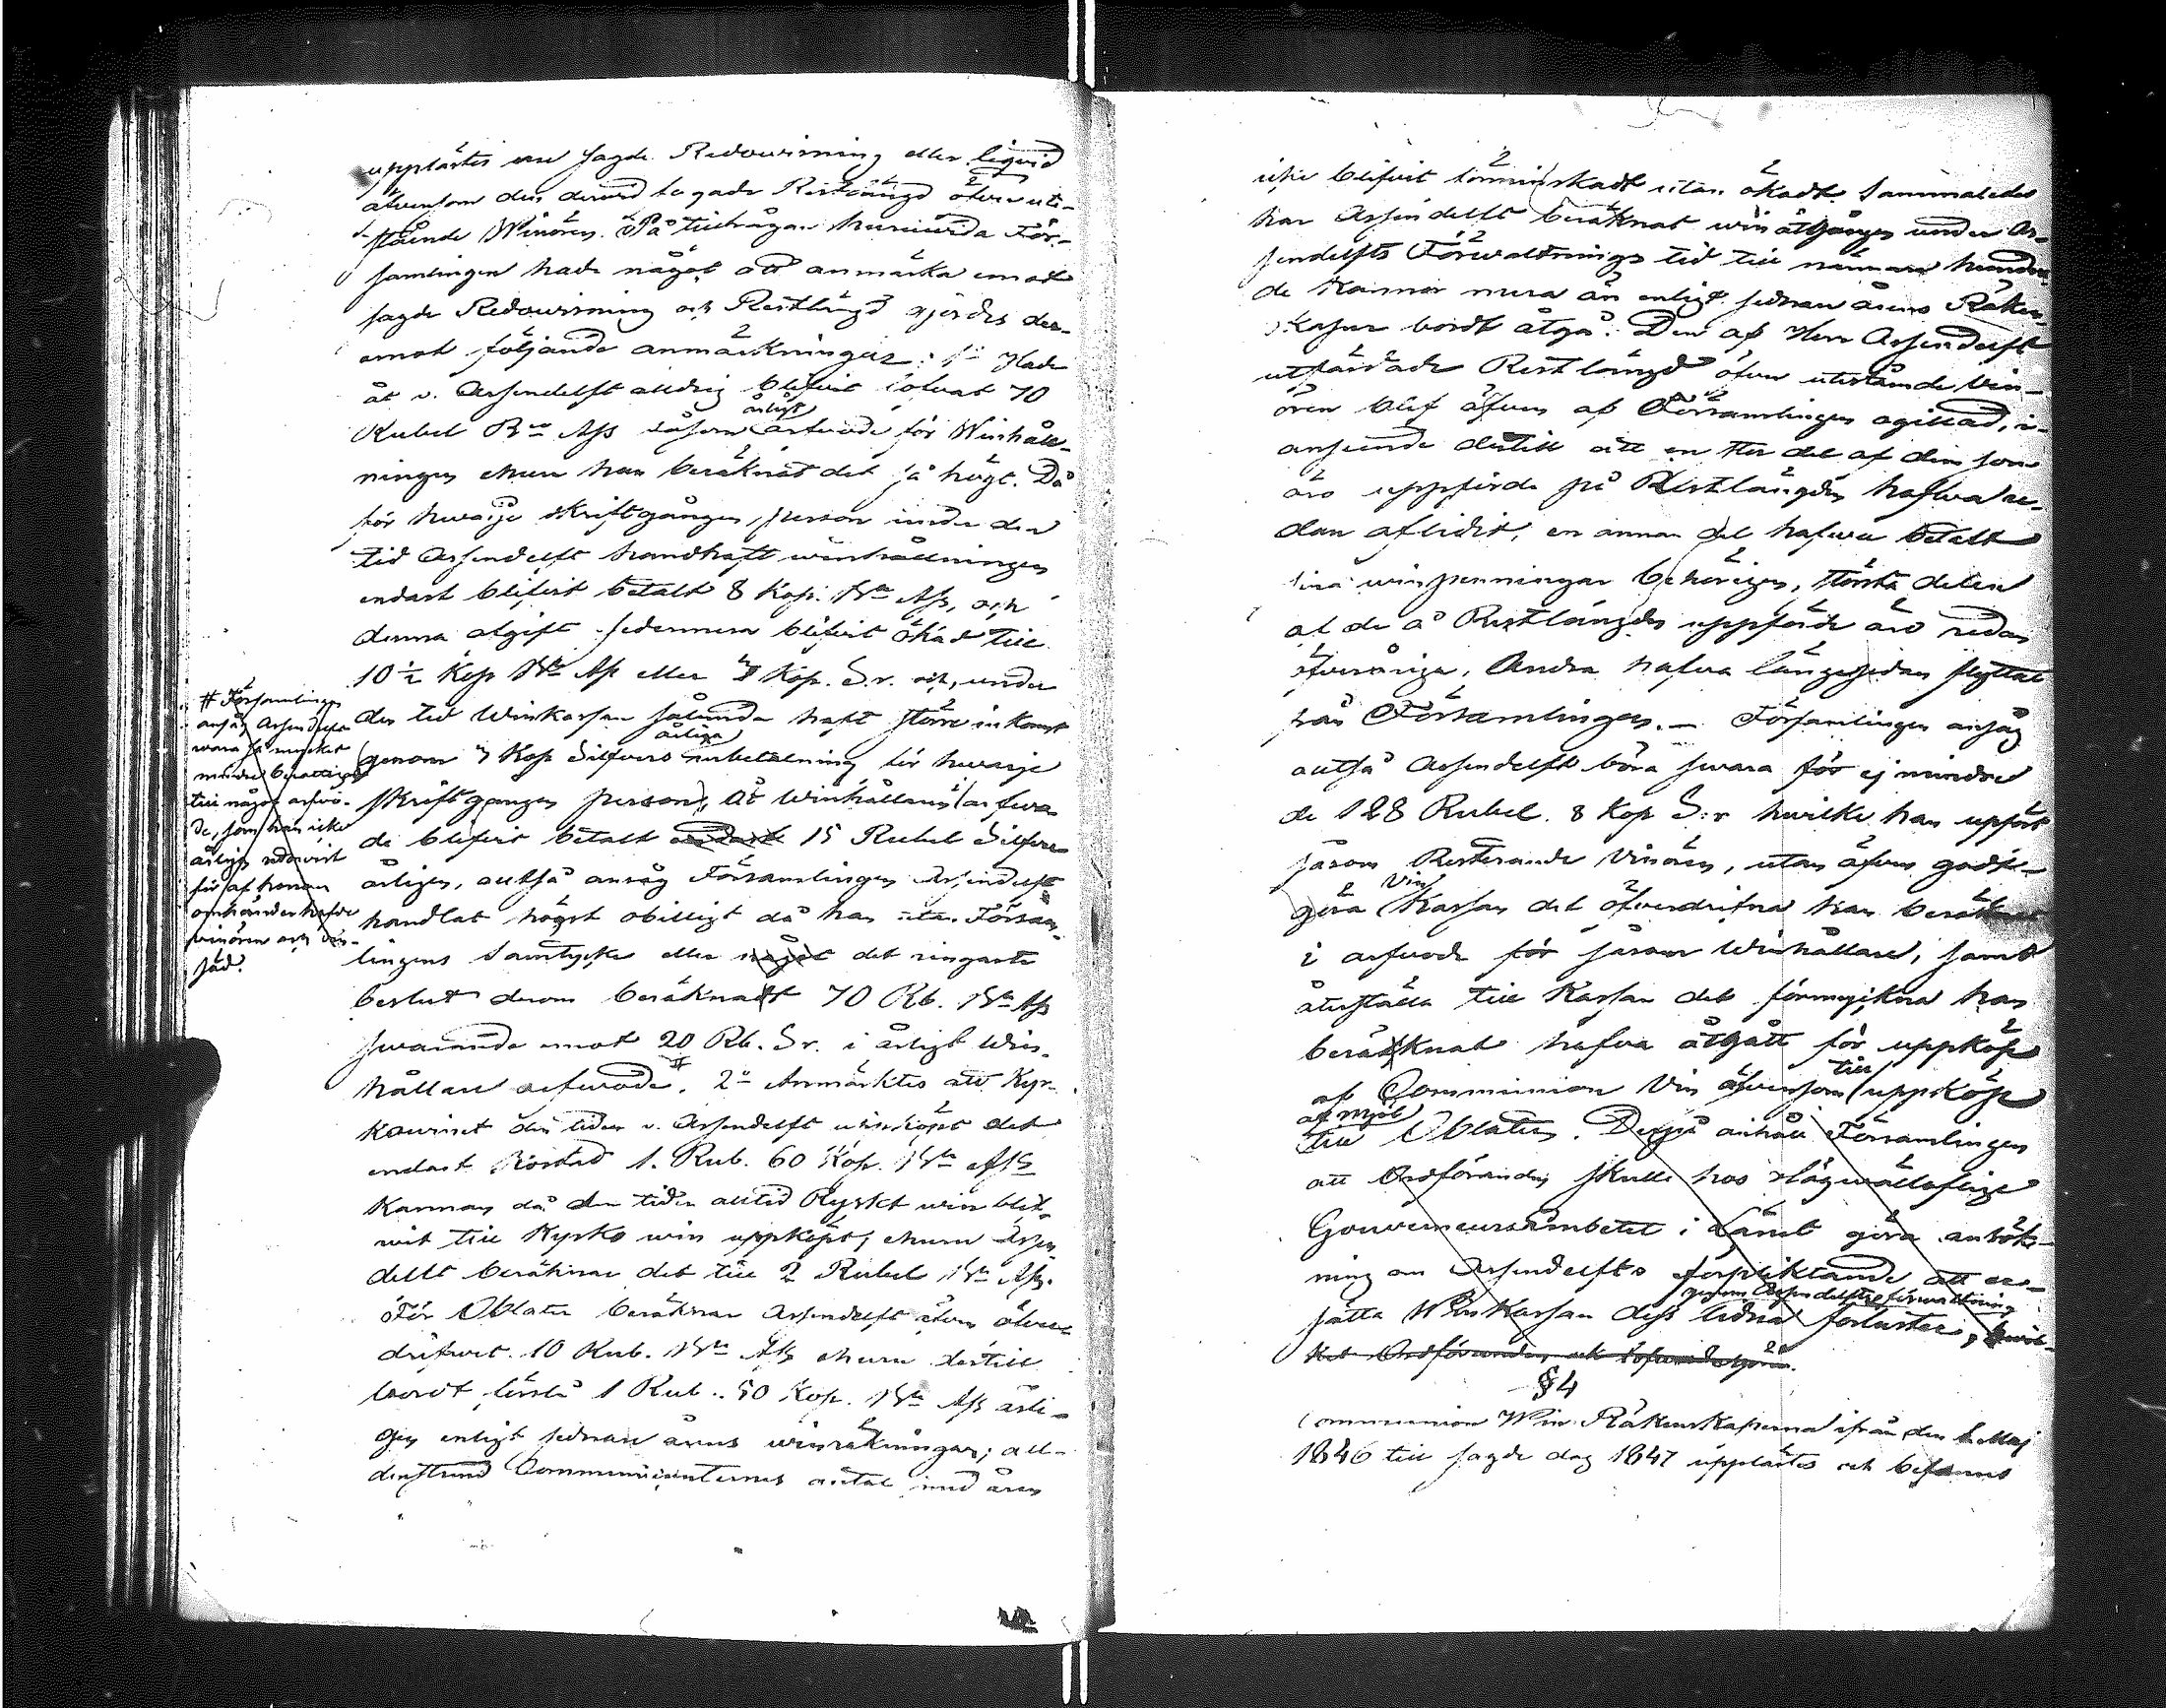 upplästes som sagde Redowisning eller liquid
äfvensom den derwid fogade Restlängd öfver ute-
stående Winören. På tillfrågan huruwida För-
samlingen hade något att anmärka emot
sagde Redowisning och Restlängd gjordes der-
emot följande anmärkningar: 1o Hade
åt v. Assendelft alldrig blifvit lofvat 70
Rubel Bco Ass såsom årligt arfwode för Winhåll-
ningen ehuru han beräknat det så högt. Då
för hwarje skriftgången person under den
tid Assendelft handhaft winhållningen
endast blifvit betalt 8 Kop. Bco Ass, och
denna afgift sedermera blifvit ökad till
10 ½ Kop Bco Ass eller 3 Kop. S.r. och, under
den tid Winkassan sålunda haft större inkomst
(genom 3 Kop Silfvers årliga inbetalning för hwarje
skriftgången person), åt Winhållaren i arfwo
de blifvit betalt endast 15 Rubel Silfver
årligen, alltså ansåg Församlingen Assendelft
handlat högst obilligt då han utan Försam-
lingens samtycke eller något det ringaste
beslut derom beräknat 70 Rb. Bco Ass
swarande emot 20 Rb. S.r. i årligt Win-
hållare arfwode. # 2o Anmärktes att Kyr-
kowinet den tiden v. Assendelft uppköpt det
endast kostad 1. Rub. 60 Kop. Bco Ass
Kannan då den tiden alltid Ryskt win blif-
wit till Kyrko win uppköpt, ehuru Assen
delft beräknar det till 2 Rubel Bco Ass.
För Oblater beräknar Assendelft äfven öfver
drifwet 10 Rub. Bco Ass ehuru dertill
bordt förslå 1 Rub. 50 Kop. Bco Ass årli-
gen enligt sednare årens winräkningar; all-
denstund Communicanternes antal med åren
# Församlingen
ansåg Assendelft
wara så mycket
mindre berättigad
till något arfwo-
de, som han icke
årligen redovist
för af honom
omhänder hafde
winören och win-
säd.
icke blifvit förminskadt utan ökadt. Sammaledes
har Assendelft beräknat win åtgången under As-
sendelfts Förwaltnings tid till närmare hundra
de Kannor mera än enligt sednare årens Räken-
skaper bordt åtgå. Den af Herr Assendelft
utfärdade Restlängd öfver utestående Vin-
ören blef äfven af Församlingen ogillad, i
anseende dertill att en stor del af dem som
äro uppförde på Restlängden hafwa re-
dan aflidit, en annan del hafwa betalt
sina winpenningar behörigen, största delen
af de å Restlängden uppförde äro redan
öfveråriga, Andra hafva längesedan flyttat
från Församlingen. — Församlingen ansåg
alltså Assendelft böra swara för ej mindre
de 128 Rubel 8 Kop S:r hwilke han uppfört
såsom Resterande Vinören, utan äfven godt-
göra Vin Kassan det öfverdrifna han beräknat
i arfwode för såsom Winhållare, samt
återställa till Kassan det förmycikna han
beräknat hafva åtgått för uppköp
af Communion Vin äfvensom till uppköp
af Mjöl till Oblater. Derpå anhöll Församlingen
att Ordföranden skulle hos Högwälloflige
Gouverneursämbetet i Länet göra ansök-
ning om Assendelfts förpliktande att er-
sätta WinKassan dess genom Assendelfts förwaltning lidna förluster, hwil-
ket Ordföranden ock lofwade göra.
§4
Communion Win Räkenskaperna ifrån den 1 Maj
1846 till sagde dag 1847 upplästes och befanns